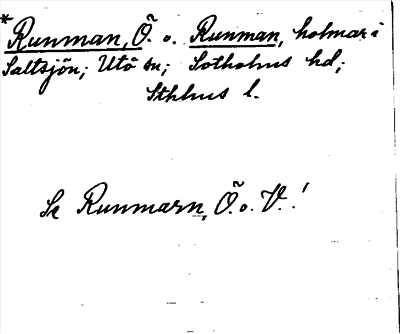 * Runman, Ö. o. Runman, holmar i
Saltsjön; Utö sn; Sotholms hd;
Sthlms l.
Se Runmarn, Ö. o. V.!